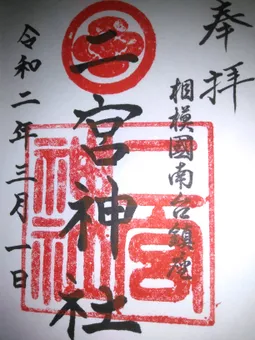 奉拝
相模國南台鎮座
二宮神社
令和二年三月一日
二宮
神社